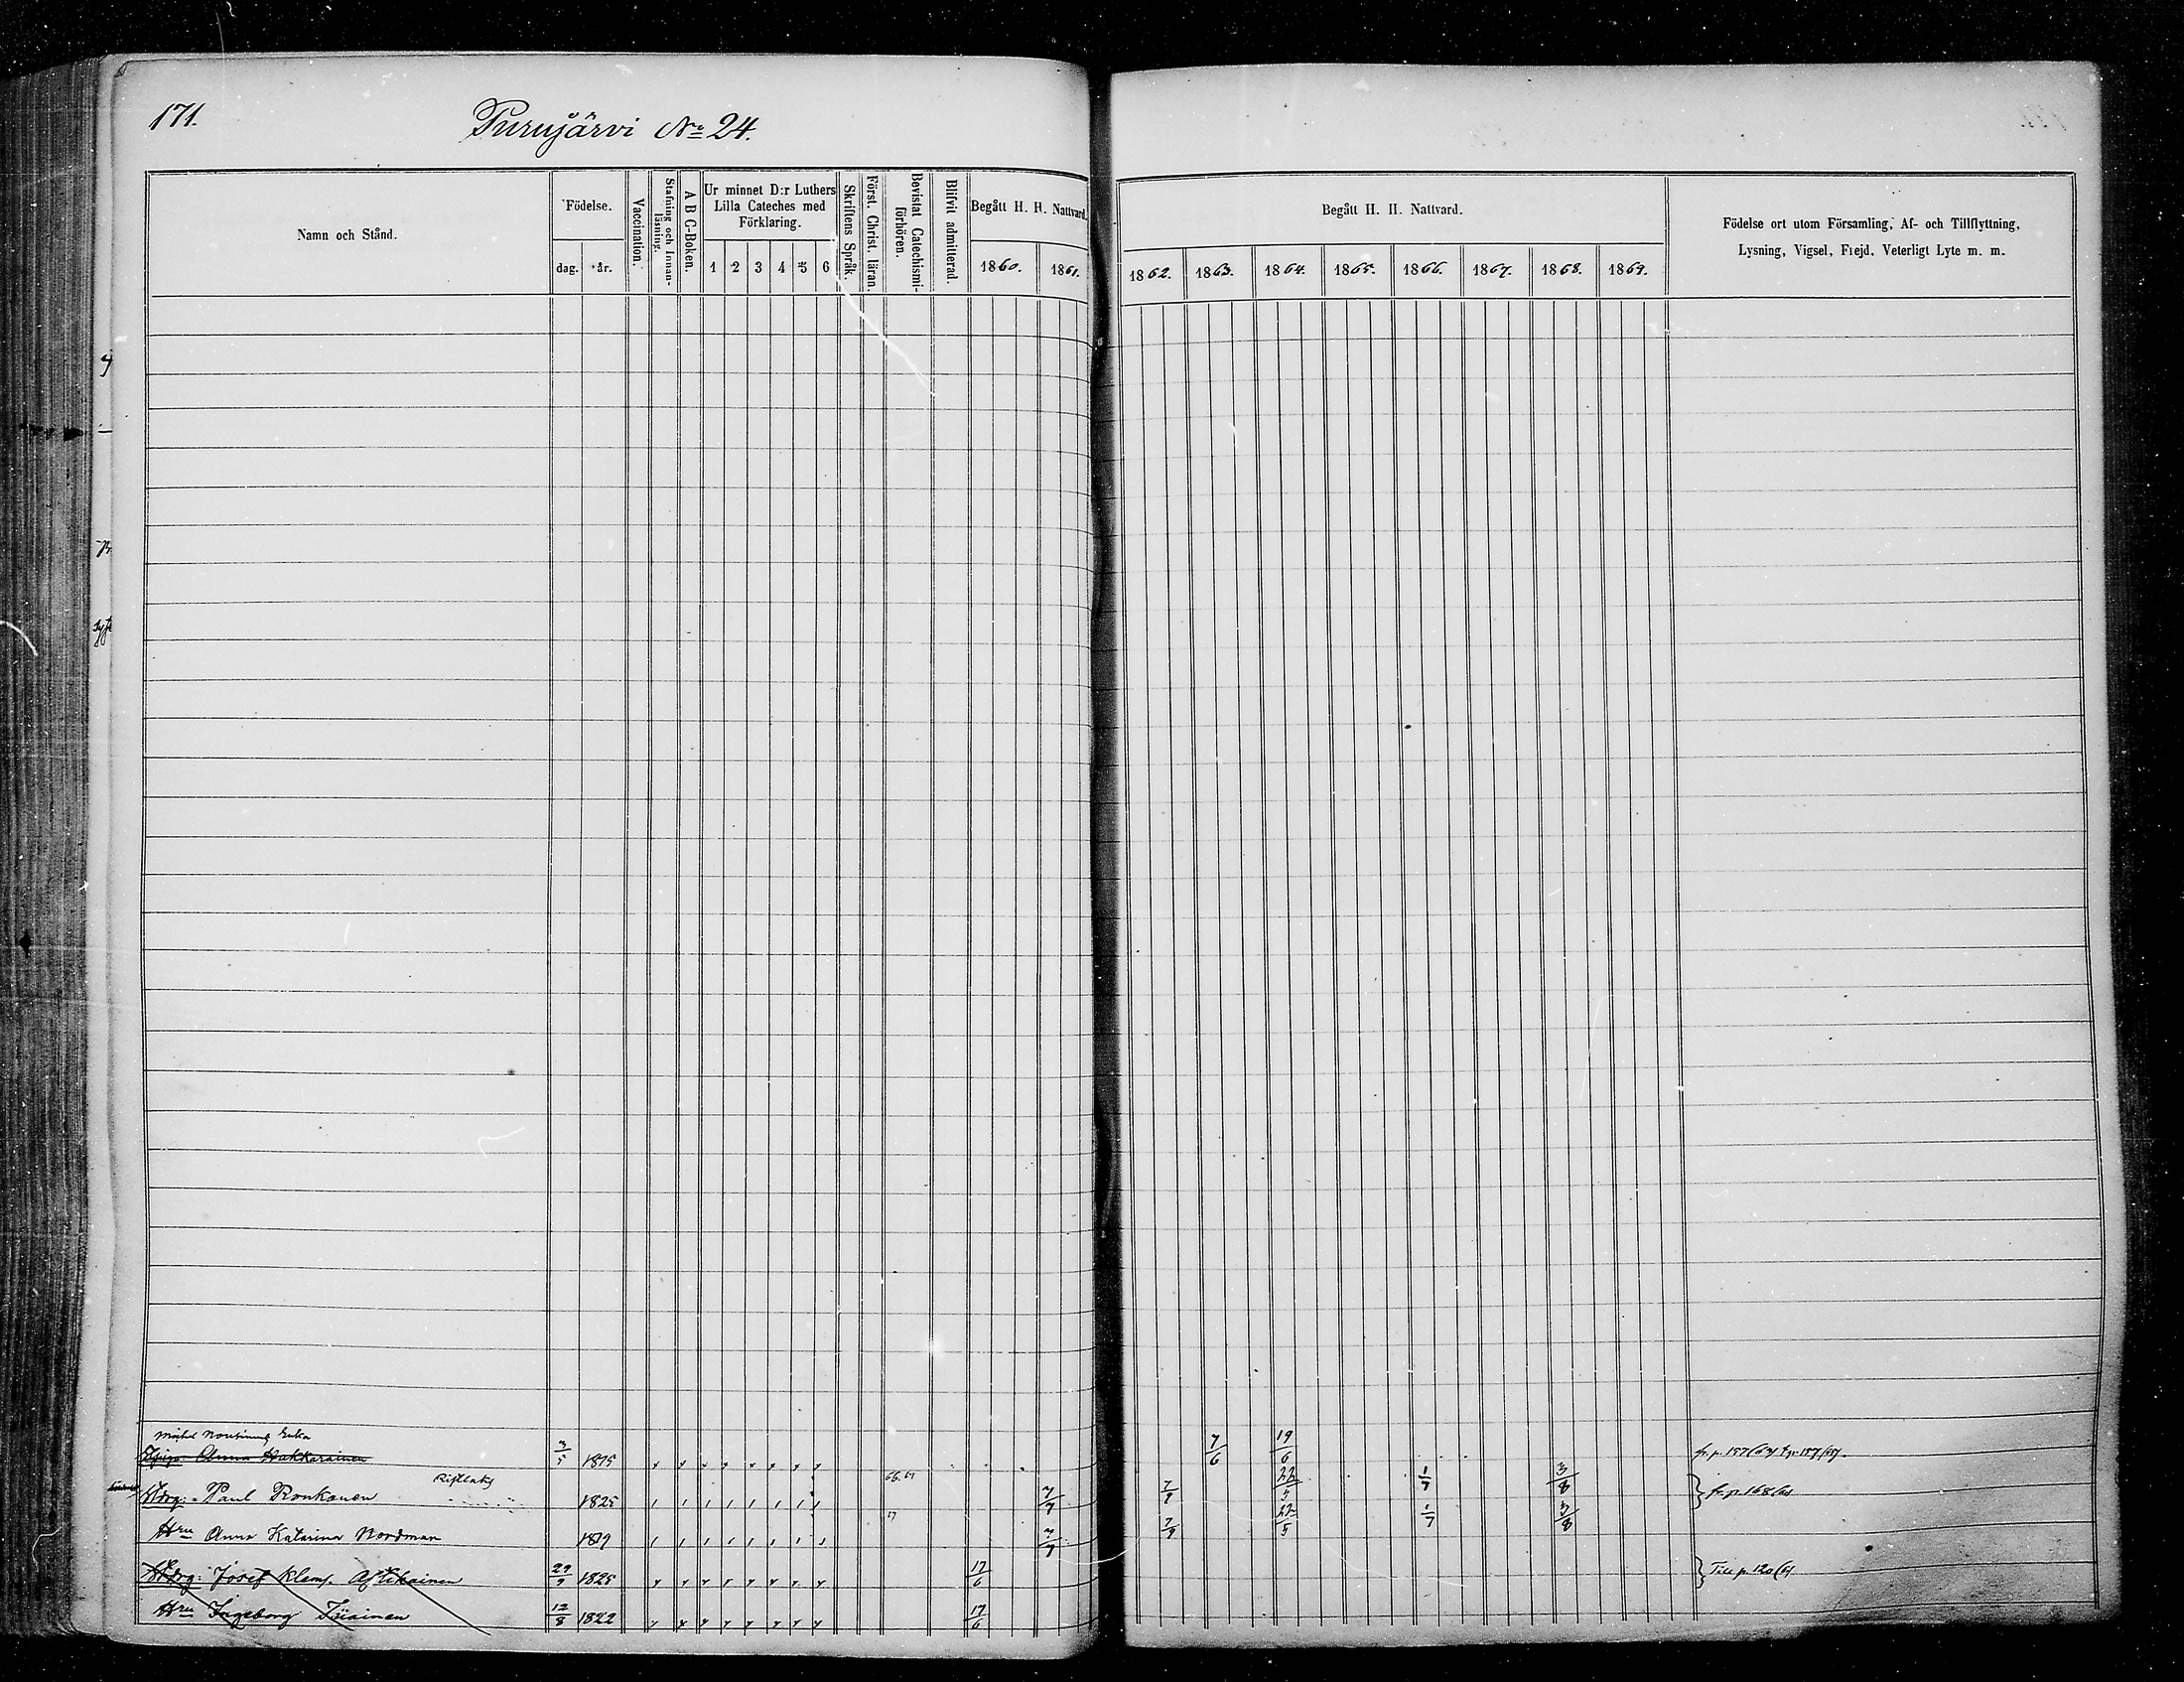 171.
Purujärvi No 24.
Namn och Stånd.
Födelse.
dag.
år.
Vaccination.
Stafning och Innan-
läsning.
A B C-Boken.
Ur minnet D:r Luthers
Lilla Cateches med
Förklaring.
1 2 3 4 5 6
Skriftens Språk.
Först. Christ. läran.
Bevistat Catechismi-
förhören.
Blifvit admitterad.
Begått H. H. Nattvard.
1860. 1861.
Begått H. H. Nattvard.
1862. 1863. 1864. 1865. 1866. 1867. 1868. 1869.
Födelse ort utom Församling, Af- och Tillflyttning,
Lysning, Vigsel, Frejd, Veterligt Lyte m. m.
Enka
Anna Hakkarainen 3/5 1815 7/6 19/6
Paul Ronkanen 1825 66. 67 7/7 7/9 22/5 1/7 3/8 fr. p. 168/61
Hru Anna Katarina Nordman 1819 67 7/7 7/9 22/5 1/7 3/8
Josef Klem. Astikainen 29/9 1825 17/6 Till p. 120/61
Hru Ingeborg Tiiainen 12/8 1822 17/6